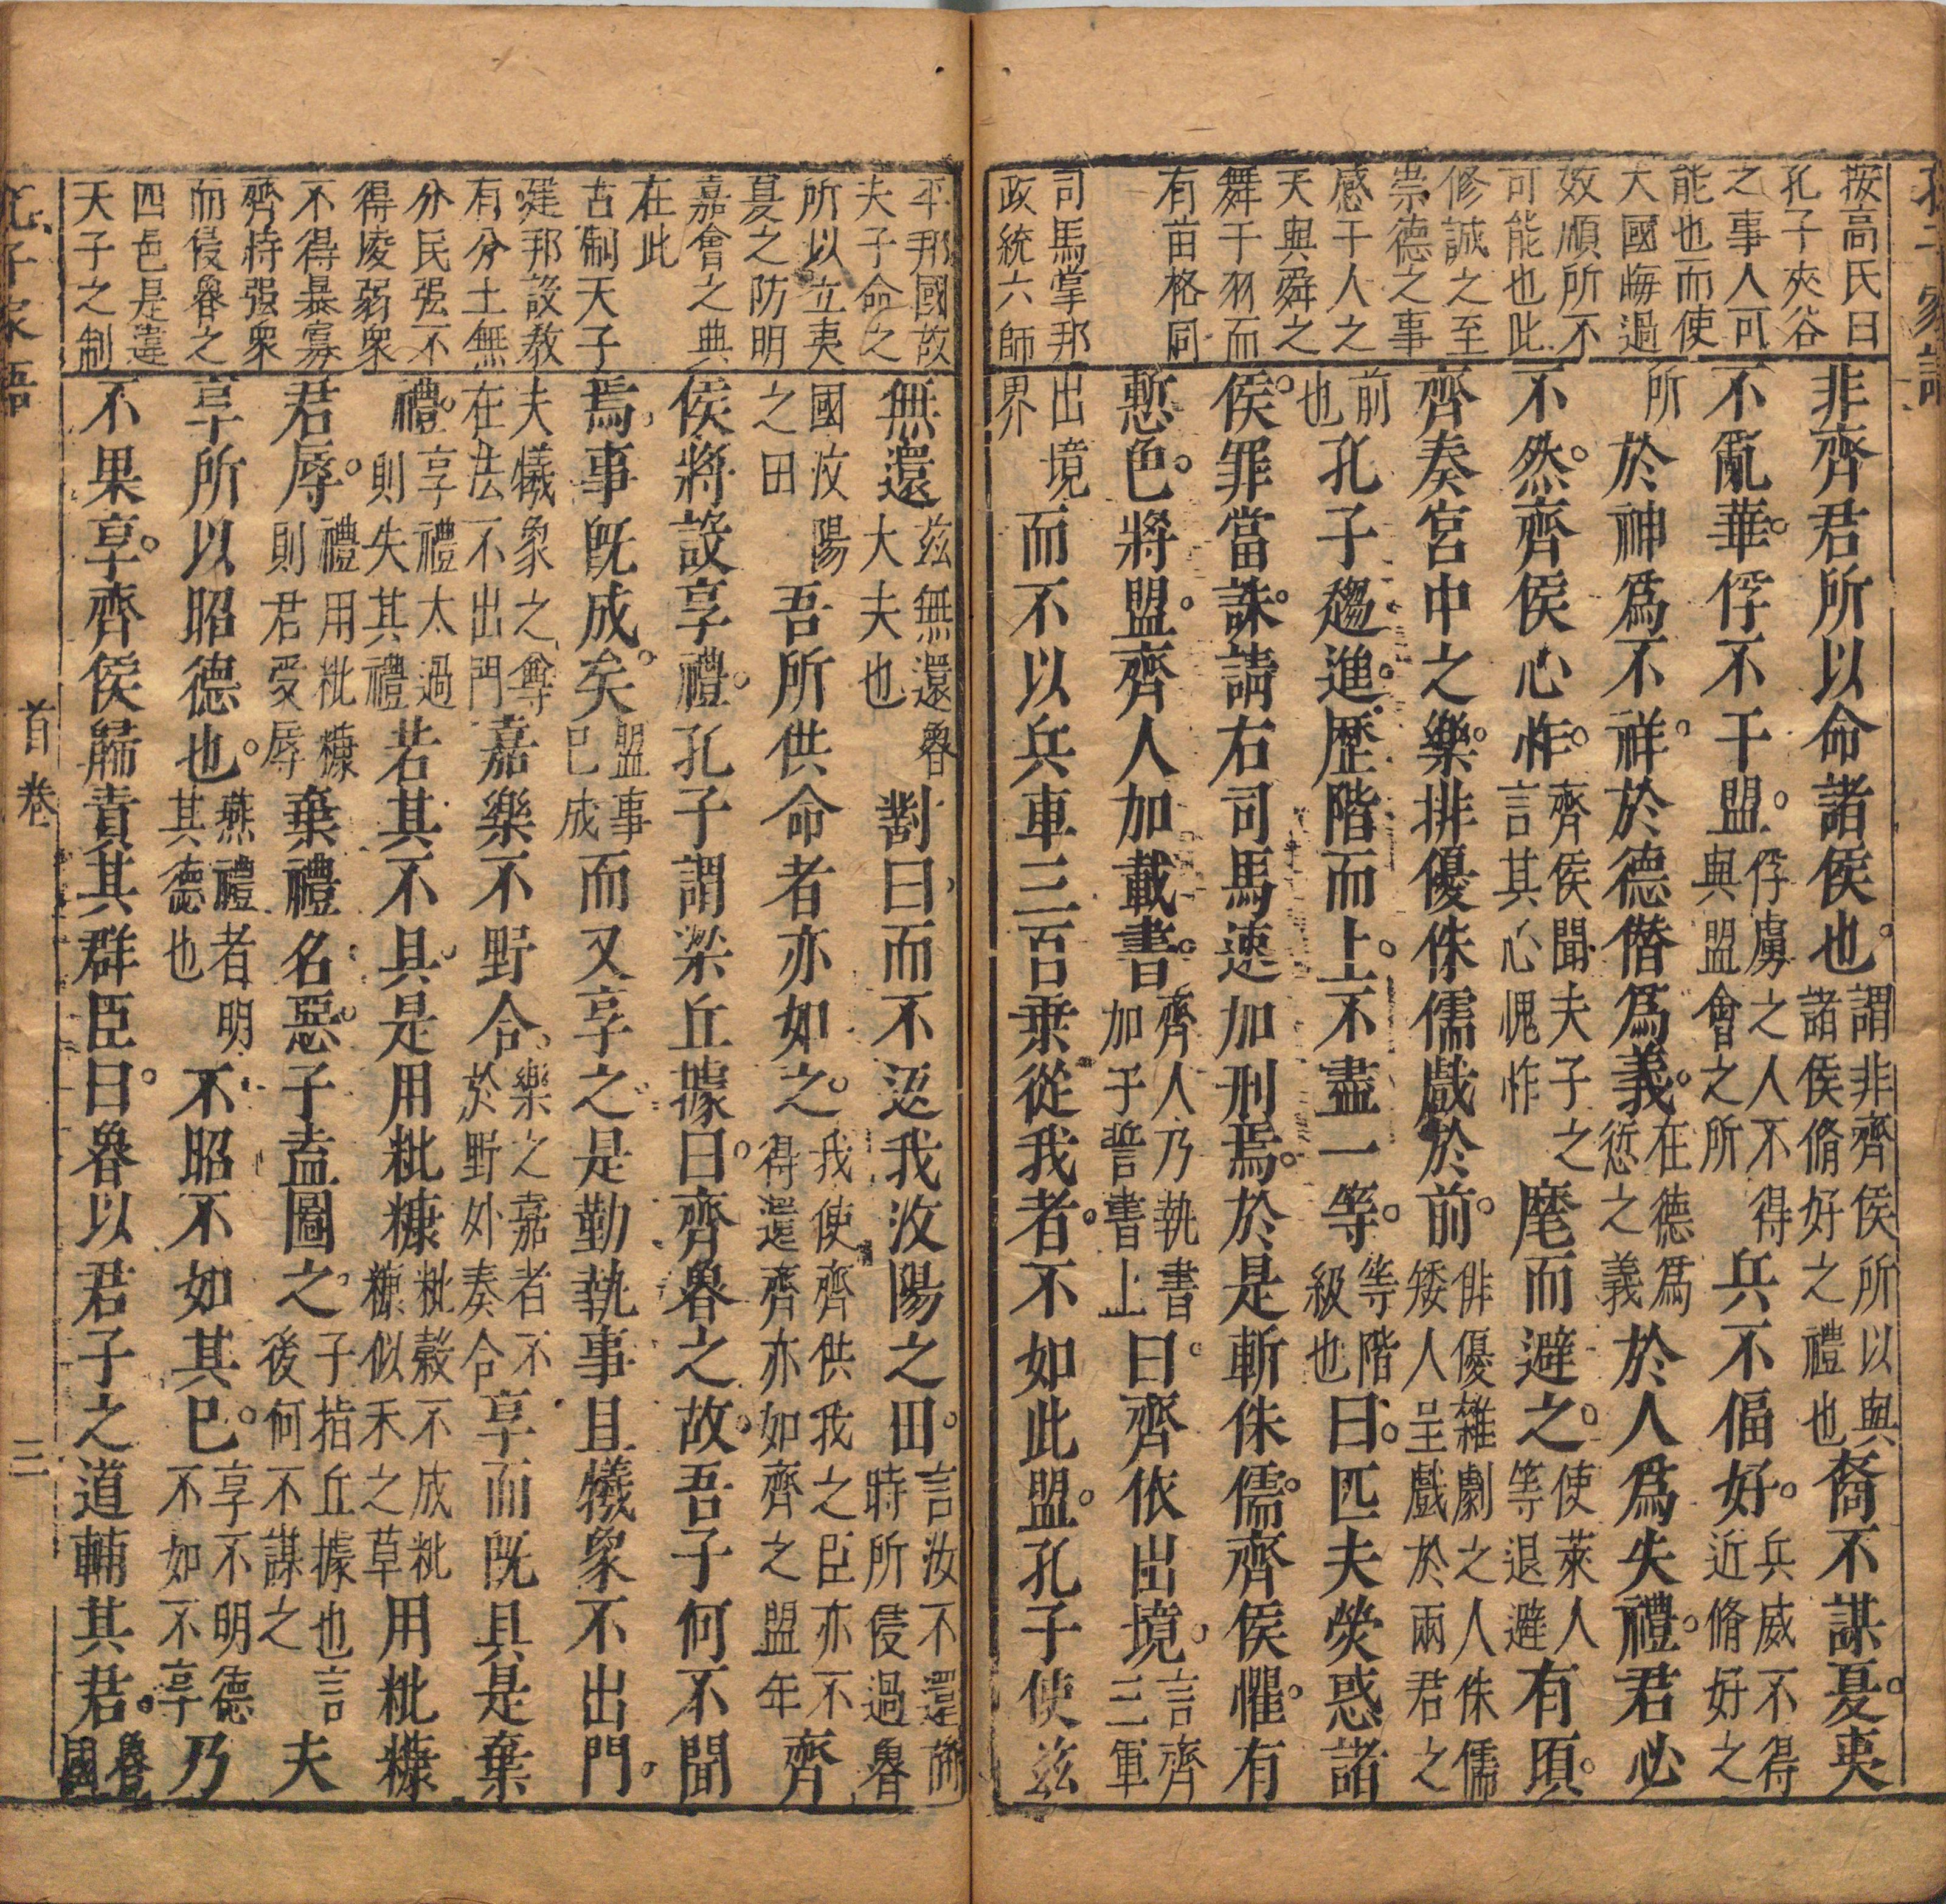 孔子家語
按高氏曰
孔子夾谷
之事人可
能也而使
大國悔過
效順所不
可能也此
修誠之至
崇德之事
感于人之
天與舜之
舞干羽而
有苗格同
司馬掌邦
政統六師
非齊君所以命諸侯也。謂非齊侯所以與諸侯脩好之禮也裔不謀夏。夷
不亂華。俘不干盟。俘虜之人不得與盟會之所兵不偪好。兵威不得近脩好之
所於神爲不祥。於德僣爲義。在德爲愆之義於人爲失禮。君必
不然。齊侯心怍。齊侯聞夫子之言其心愧怍麾而避之。使萊人等退避有頃。
齊奏宮中之樂。排優侏儒戲於前。俳優雜劇之人侏儒矮人呈戲於兩君之
前也孔子趨進。歷階而上。不盡一等。等階級也曰。匹夫熒惑諸
侯。罪當誅。請右司馬速加刑焉。於是斬侏儒。齊侯懼。有
慙色。將盟。齊人加載書。齊人乃執書加于誓書上曰。齊依出境。言齊三軍
出境界而不以兵車三百乗從我者。不如此盟。孔子使兹
平邦國故
夫子命之
所以立夷
夏之防明
嘉會之典
在此
古制天子
建邦設教
有分土無
分民强不
得凌弱衆
不得暴寡
齊恃强衆
而侵魯之
四邑是違
天子之制
無還兹無還魯大夫也對曰而不返我汶陽之田。言汝不還前時所侵過魯
國汶陽之田吾所供命者亦如之。我使齊供我之臣亦不得還齊亦如齊之盟年齊
侯將設享禮。孔子謂梁丘據曰。齊魯之故。吾子何不聞
焉事既成矣。盟事已成而又享之是勤執事且犧象不出門。
夫犧象之尊在法不出門嘉樂不野合、樂之嘉者不於野外奏合享而既具是棄
禮。享禮太過則失其禮若其不具是用秕糠秕穀不成秕糠似禾之草用秕糠
君辱。禮用秕糠則君受辱棄禮名惡。子盍圖之。子指丘據也言後何不謀之夫
享所以昭德也。燕禮者明其德也不昭不如其已。享不明德不如不享乃
不果享。齊侯歸責其群臣曰。魯以君子之道輔其君。魯國
孔子家語 首卷 三